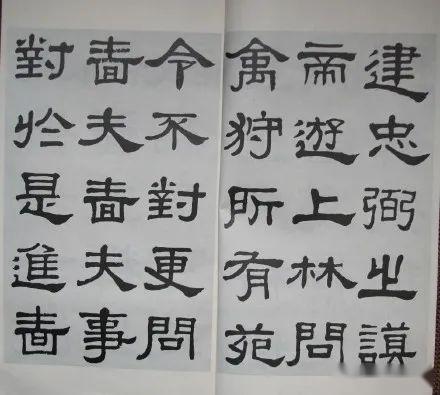 建忠弼之謨
帝遊上林問
禽狩所有苑
令不對更問
嗇夫嗇夫事
對於是進嗇